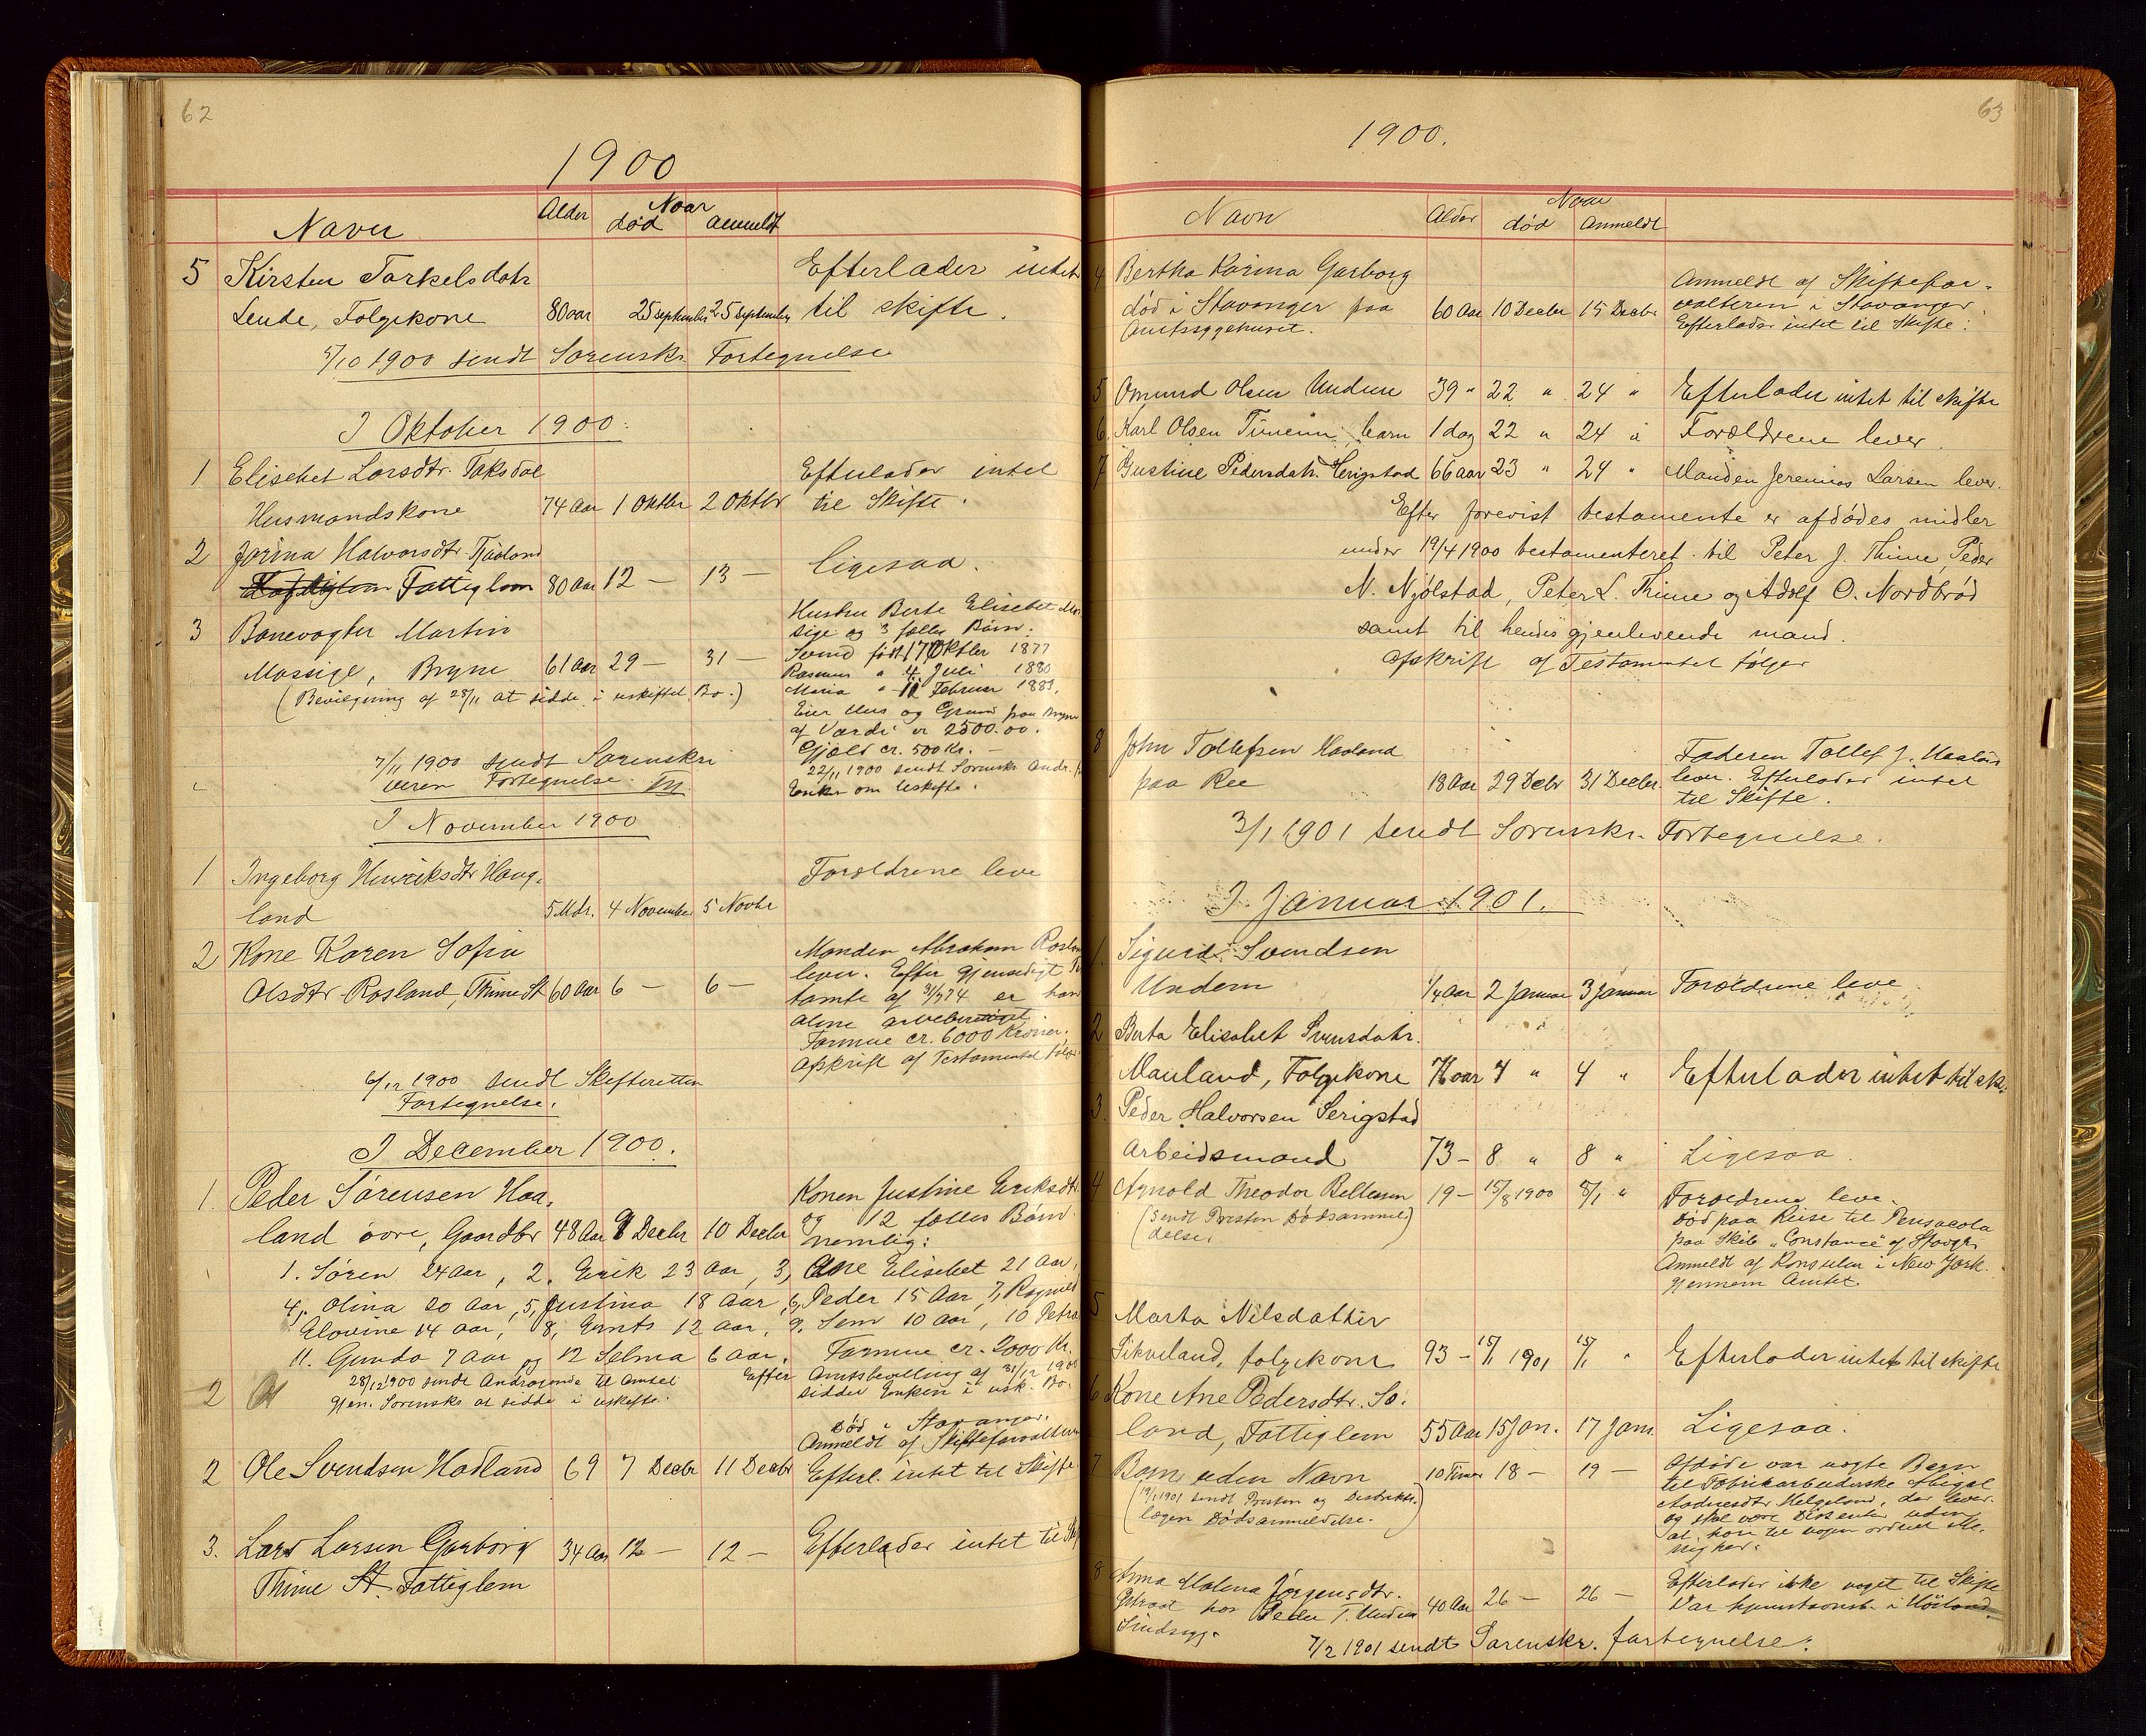 62
1900
Navn Alder Naar død anmeldt
5 Kirsten Torkelsdatr Efterlader intet
Lende, Folgekone 80 aar 25 september 25 september til skifte.
5/10 1900 sendt Sorenskr. Fortegnelse
I Oktober 1900.
1 Elisebet Larsdtr. Taksdal Efterlader intet
Husmandskone 74 Aar 1 Oktbr 2 Oktbr til Skifte.
2 Jorina Halvorsdtr Tjaaland
Fattiglem 80 Aar 12 — 13 — ligesaa.
3 Banevogter Martin
Mossige, Bryne 61 Aar 29 — 31 —
(Bevilgning af 28/11 at sidde i uskiftet Bo.)
Hustru Berte Elisebet Mos
sige og 3 fælles Børn:
Svend født 17 Oktbr 1877
Rasmus " 4 Juli 1880
Maria " 11 Februar 1883.
Eier Hus og Grund paa Bryne
af Værdi cr 2500.00.
Gjæld cr. 500 Kr. —
22/11 1900 sendt Sorenskr Andr. f
Enken om Uskifte.
7/11 1900 sendt Sorenskri
veren Fortegnelse.
I November 1900
1 Ingeborg Henriksdtr Haug- Forældrene leve
land 5 Mdr. 4 November 5 Novbr
2 Kone Karen Sofia
Olsdtr Rosland, Thime St 60 Aar 6 — 6 —
Manden Abraham Rosla
lever. Efter gjensidigt Te
tamte af 31/7 74 er han
alene arveberettiget
Formue cr. 6000 Kroner.
Afskrift af Testamentet følger
6/12 1900 sendt Skifteretten
Fortegnelse.
I December 1900.
1. Peder Sørensen Haa- Konen Justine Eriksdtr
land øvre, Gaardbr 48 Aar 9 Decbr 10 Decbr og 12 fælles Børn
nemlig:
1. Søren 24 Aar, 2. Erik 23 Aar, 3, Ane Elisebet 21 Aar,
4, Olina 20 Aar, 5, Justina 18 Aar, 6, Peder 15 Aar, 7, Ragnild
Elovine 14 aar, 8, Gunts 12 aar, 9. Sem 10 aar, 10 Petra
11. Gunda 7 Aar og 12 Selma 6 aar. Formue cr. 2000 Kr.
28/12 1900 sendt Andragende til Amtet Efter Amtsbevilling af 31/12 1900
2 gjen. Sorenskr at sidde i uskifte. sidder Enken i usk. Bo.
Død i Stavanger.
Anmeldt af Skifteforvalteren
2 Ole Svendsen Hadland 69 7 Decbr 11 Decbr Efterl. intet til Skifte
3. Lars Larsen Garborg 34 Aar 12 — 12 — Efterlader intet til Sk
Thime St. Fattiglem
63
1900.
Navn Alder Naar død Anmeldt
4 Bertha Karina Garborg
død i Stavanger paa 60 Aar 10 Decbr 15 Decbr
Amtssygehuset.
Anmeldt af Skiftefor-
valteren i Stavanger.
Efterlader intet til Skifte.
5 Omund Olsen Undem 39 " 22 " 24 " Efterlader intet til skifte
6. Karl Olsen Tuneim, barn 1 dag 22 " 24 " Forældrene lever.
7 Gustine Pedersdatr. Serigstad 66 aar 23 " 24 " Manden Jeremias Larsen lever.
Efter forevist testamente er afdødes midler
under 19/4 1900 testamenteret til Peter J. Thime, Peder
N. Njølstad, Peter L. Thime og Adolf O. Nordbrød
samt til hendes gjenlevende mand.
Afskrift af Testamentet følger
8 John Tollefsen Hasland
paa Ree 18 Aar 29 Decbr 31 Decbr.
Faderen Tollef J. Hasland
lever. Efterlader intet
til Skifte.
3/1 1901 sendt Sorenskr. Fortegnelse.
I Januar 1901.
1. Sigurd Svendsen
Undem 1/4 Aar 2 Januar 3 Januar Forældrene leve
2 Berta Elisabet Svensdatr.
Mauland, Folgekone 76 aar 4 " 4 " Efterlader intet til sk.
3. Peder Halvorsen Serigstad
Arbeidsmand 73 – 8 " 8 " Ligesaa.
4 Arnold Theodor Bellesen 19 – 15/8 1900 8/1 " Forældrene leve.
(sendt Presten Dødsanmel-
delse.)
Død paa Reise til Pensacola
paa Skib "Constance" af Stavgr.
Anmeldt af Konsulen i New York
gjennem Amtet.
5 Marta Nilsdatter
Sikveland, folgekone 93 – 15/1 1901 15/1 " Efterlader intet til skifte
6 Kone Ane Pedersdtr. So-
land, Fattiglem 55 Aar 15 Jan. 17 Jan. Ligesaa.
7 Barn uden Navn 10 Timer 18 – 19 –
(19/1 1901 sendt Presten og Distrikts-
lægen Dødsanmeldelse.)
Afdøde var uægte Barn
til Fabrikarbeiderske Abigael
Aadnesdtr Helgeland, der lever
og skal være Dissenter uden
at høre til nogen ordnet Me-
nighed.
8 Anna Malena Jørgensdtr.
Optraat hos Peder T. Undem 40 Aar 26 – 26 –
Sindssyg.
Efterlader ikke noget til Skifte
Var hjemstavnsb. i Høiland
7/2 1901 sendt Sorenskr. fortegnelse.